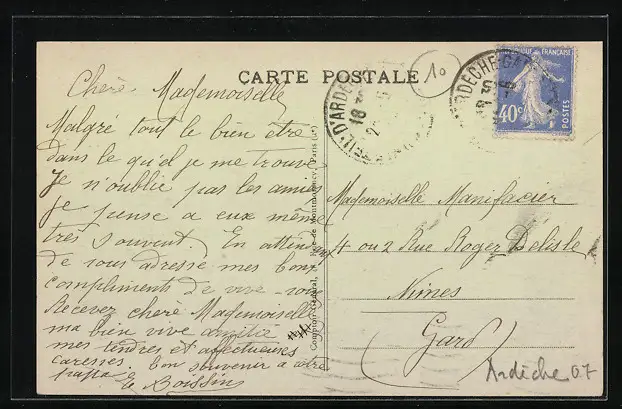 CARTE POSTALE
10
RÉPUBLIQUE FRANÇAISE
40c
POSTES
D'ARDÈCHE
18
ARDÈCHE-GARE
18
Cherè Mademoiselle
Malgré tout le bien être
dans le qu'el je me trouve
Je n'oublie pas les amies
Je pense a eux même
très souvent. En attendent
de vous adressé mes bons
compliments de vive-voix
Recevez cherè Mademoiselle
ma bien vive amitié
mes tendres et affectueuses
caresses. bon souvenir a votre
pappa
Boissin
Comptoir Général, Rue de Montmorency, Paris (3e)
Mademoiselle Manifacier
4 ou 2 Rue Roger Delisle
Nimes
Gard
Ardèche 07